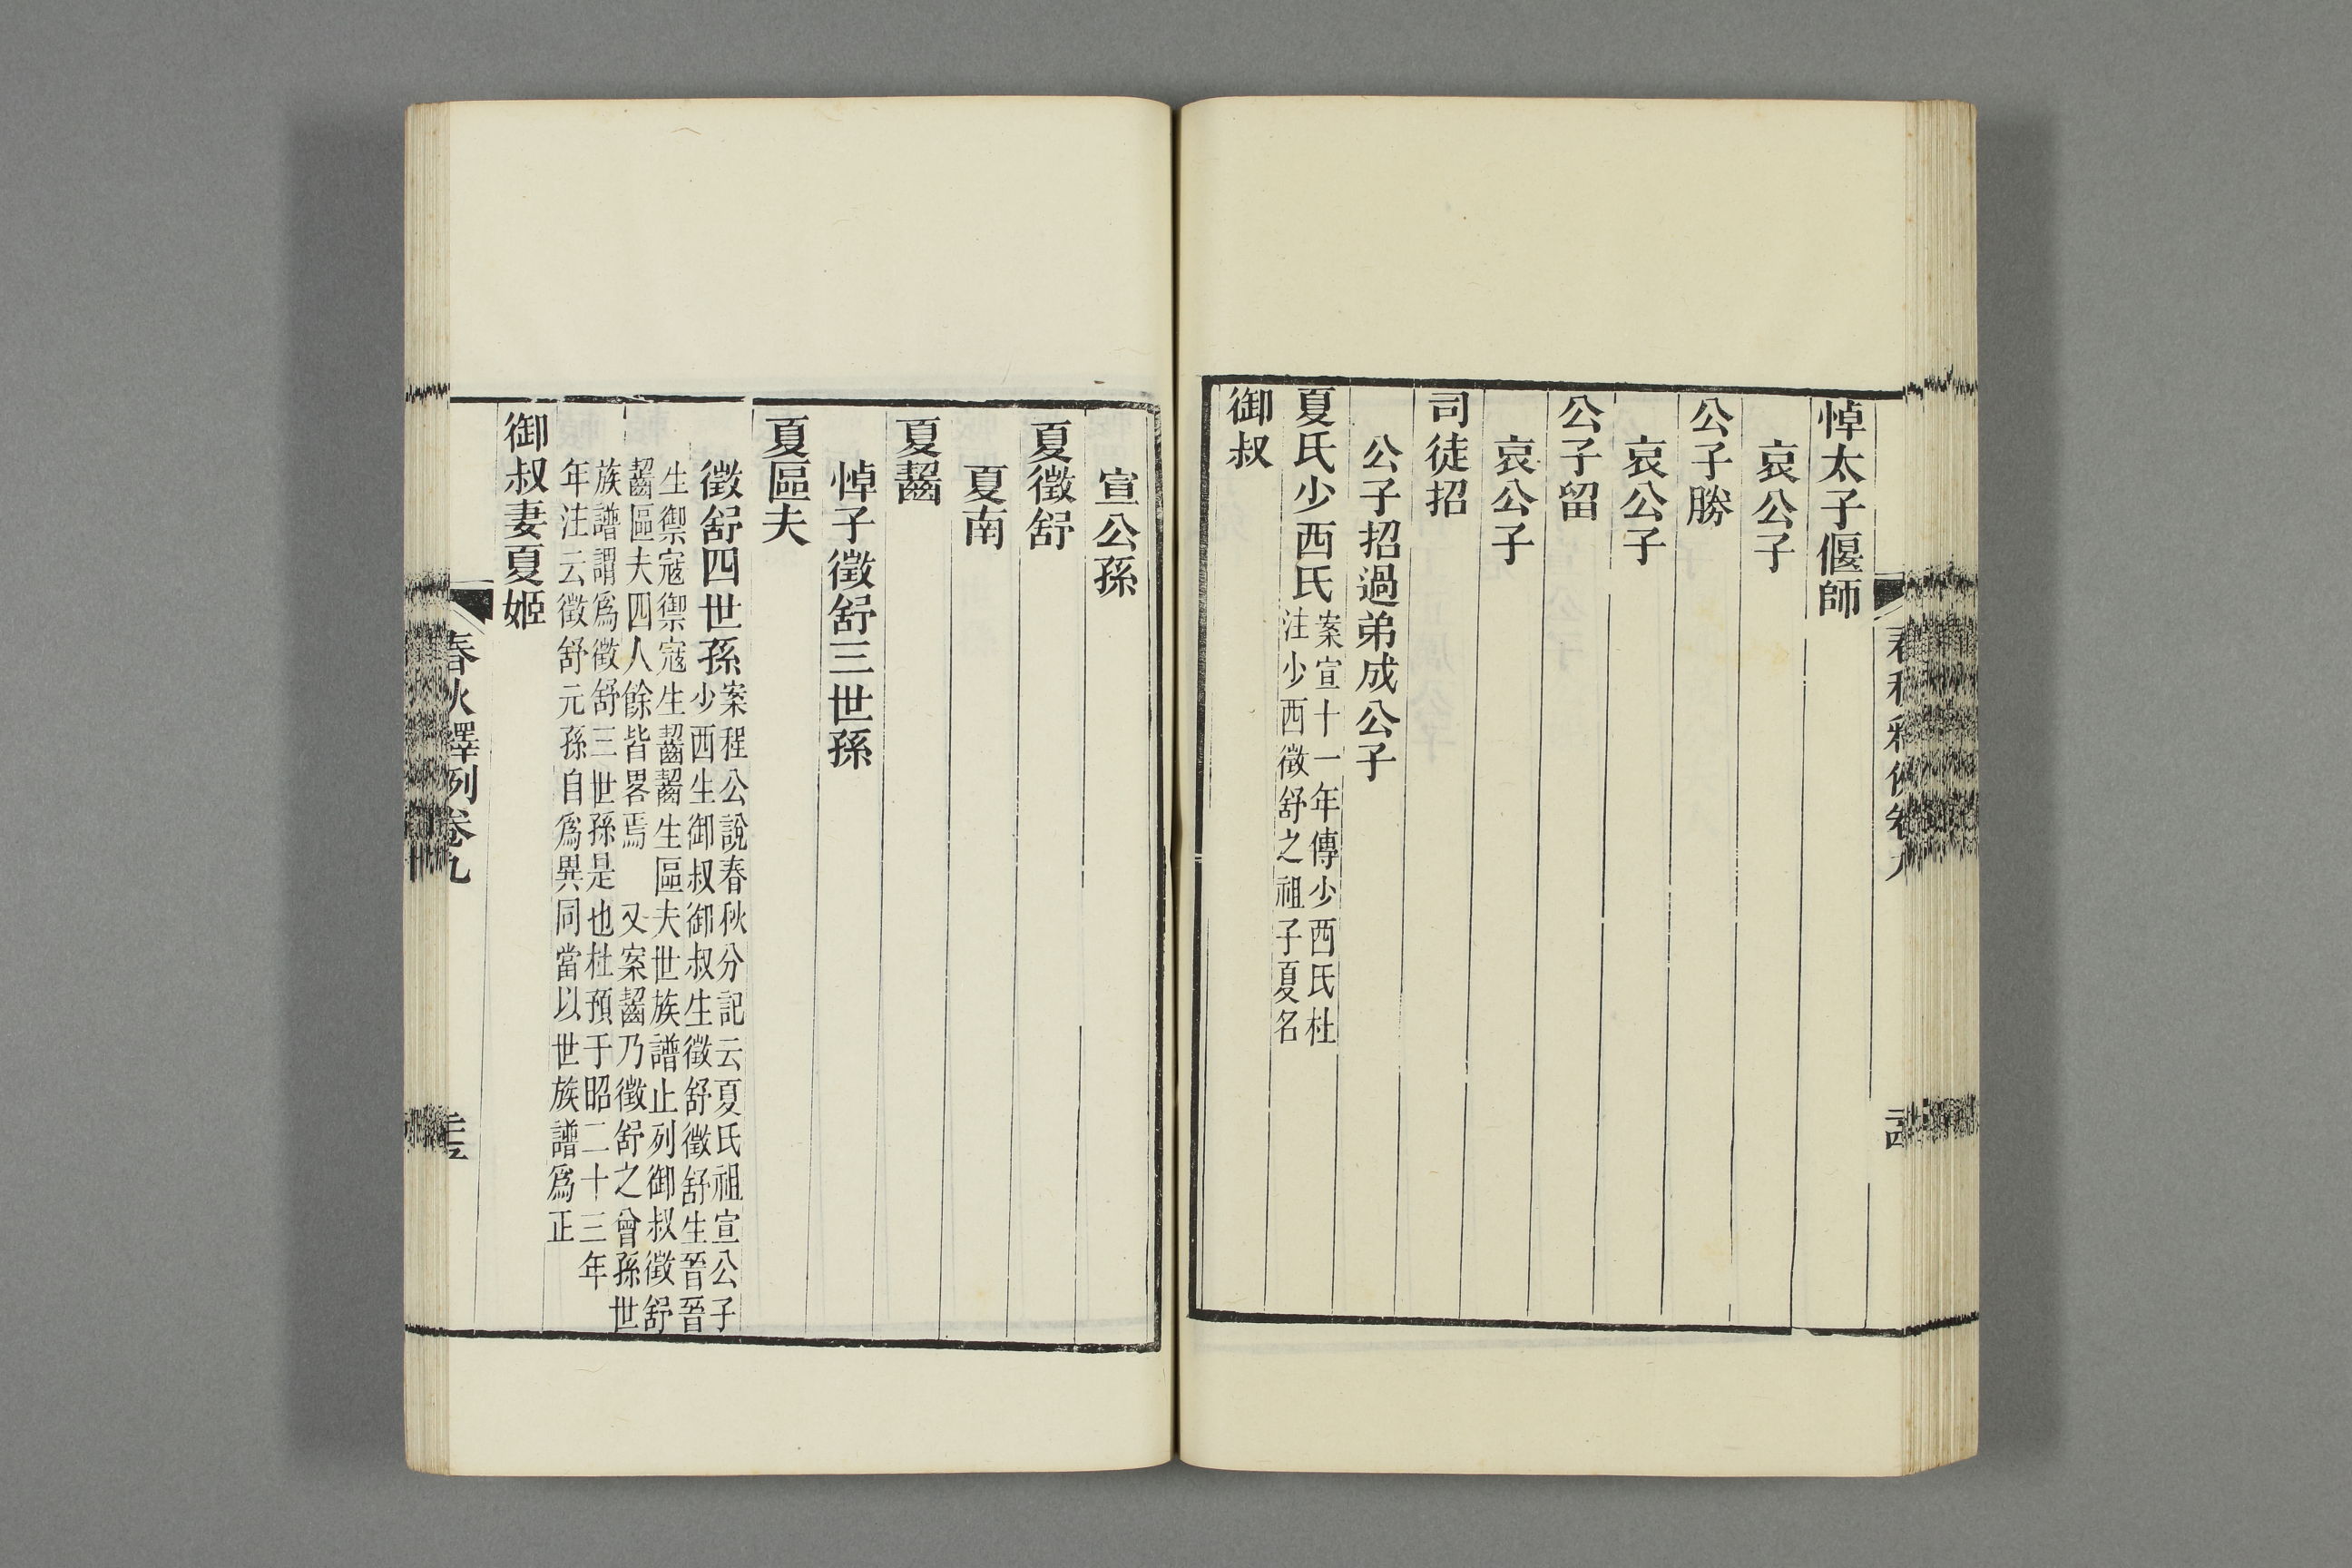 悼太子偃師
哀公子
公子勝
哀公子
公子留
哀公子
司徒招
公子招過弟成公子
夏氏少西氏案宣十一年傳少西氏杜
注少西徵舒之祖子夏名
御叔
宣公孫
夏徵舒
夏南
夏齧
悼子徵舒三世孫
夏區夫
徵舒四世孫案程公說春秋分記云夏氏祖宣公子
少西生御叔御叔生徵舒徵舒生晉晉
生禦寇禦寇生齧齧生區夫世族譜止列御叔徵舒
齧區夫四人餘皆畧焉 又案齧乃徵舒之曾孫世
族譜謂爲徵舒三世孫是也杜預于昭二十三年
年注云徵舒元孫自爲異同當以世族譜爲正
御叔妻夏姬
春秋釋例卷九